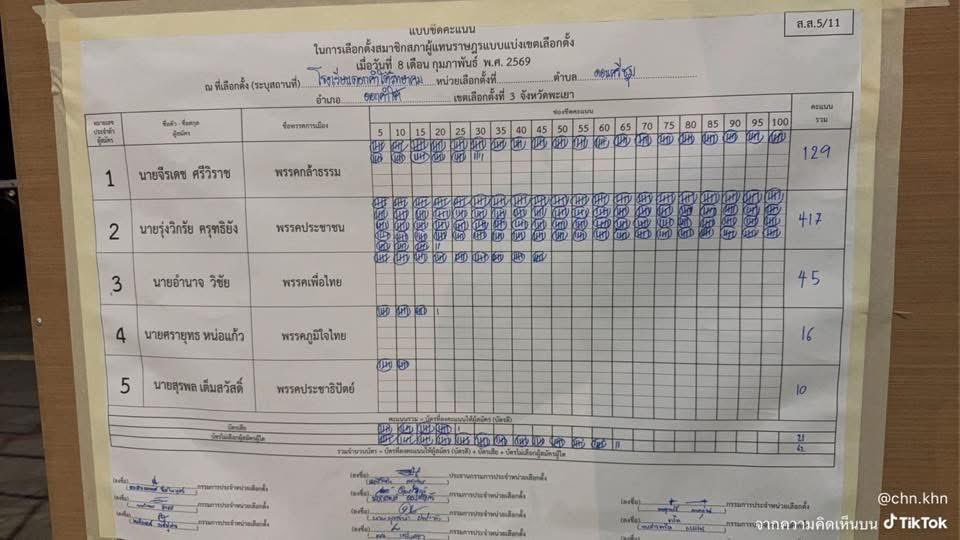 ส.ส.5/11
แบบขีดคะแนน
ในการเลือกตั้งสมาชิกสภาผู้แทนราษฎรแบบแบ่งเขตเลือกตั้ง
เมื่อวันที่ 8 เดือน กุมภาพันธ์ พ.ศ. 2569
ณ ที่เลือกตั้ง (ระบุสถานที่) โรงเรียนดอกคำใต้วิทยาคม หน่วยเลือกตั้งที่ ตำบล ดอนศรีชุม
อำเภอ ดอกคำใต้ เขตเลือกตั้งที่ 3 จังหวัดพะเยา
หมายเลขประจำตัวผู้สมัคร ชื่อตัว - ชื่อสกุล ผู้สมัคร ชื่อพรรคการเมือง ช่องขีดคะแนน คะแนนรวม
5 10 15 20 25 30 35 40 45 50 55 60 65 70 75 80 85 90 95 100
1 นายจีรเดช ศรีวิราช พรรคกล้าธรรม 129
2 นายรุ่งวิกรัย ครุฑธิยัง พรรคประชาชน 417
3 นายอำนาจ วิชัย พรรคเพื่อไทย 45
4 นายศรายุทธ หน่อแก้ว พรรคภูมิใจไทย 16
5 นายสุรพล เต็มสวัสดิ์ พรรคประชาธิปัตย์ 10
คะแนนรวม = บัตรที่ลงคะแนนให้ผู้สมัคร (บัตรดี)
บัตรเสีย
บัตรไม่เลือกผู้สมัครผู้ใด
รวมจำนวนบัตร = บัตรที่ลงคะแนนให้ผู้สมัคร (บัตรดี) + บัตรเสีย + บัตรไม่เลือกผู้สมัครผู้ใด
(ลงชื่อ) กรรมการประจำหน่วยเลือกตั้ง (ลงชื่อ) ประธานกรรมการประจำหน่วยเลือกตั้ง
(ลงชื่อ) กรรมการประจำหน่วยเลือกตั้ง (ลงชื่อ) กรรมการประจำหน่วยเลือกตั้ง (ลงชื่อ) กรรมการประจำหน่วยเลือกตั้ง
(ลงชื่อ) กรรมการประจำหน่วยเลือกตั้ง (ลงชื่อ) กรรมการประจำหน่วยเลือกตั้ง (ลงชื่อ)
(ลงชื่อ) กรรมการประจำหน่วยเลือกตั้ง
@chn.khn
จากความคิดเห็นบน TikTok